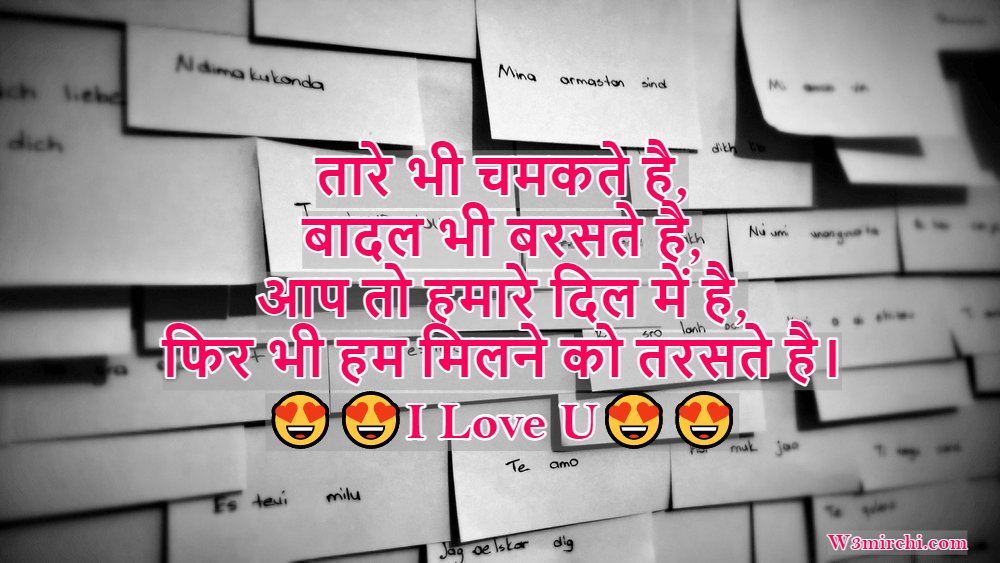 Ndimakukonda
Mina armastan sind
ich liebe
dich
तारे भी चमकते है,
बादल भी बरसते है,
आप तो हमारे दिल में है,
फिर भी हम मिलने को तरसते है।
😍😍I Love U😍😍
Te amo
muk jao
Es tevi milu
Jag aelskar dig
W3mirchi.com